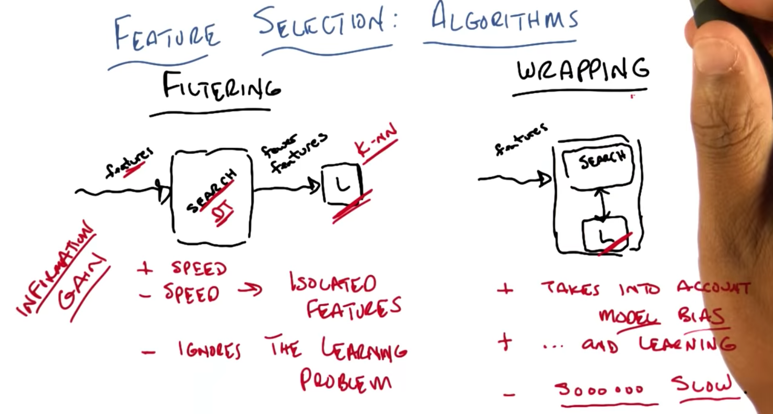 FEATURE SELECTION: ALGORITHMS
FILTERING
features
SEARCH
DT
fewer features
L
K-NN
INFIRMATION
GAIN
+ SPEED
- SPEED → ISOLATED
FEATURES
- IGNORES THE LEARNING
PROBLEM
WRAPPING
features
SEARCH
L
+ TAKES INTO ACCOUNT
MODEL BIAS
+ ... AND LEARNING
- SOOOOOOO SLOW.